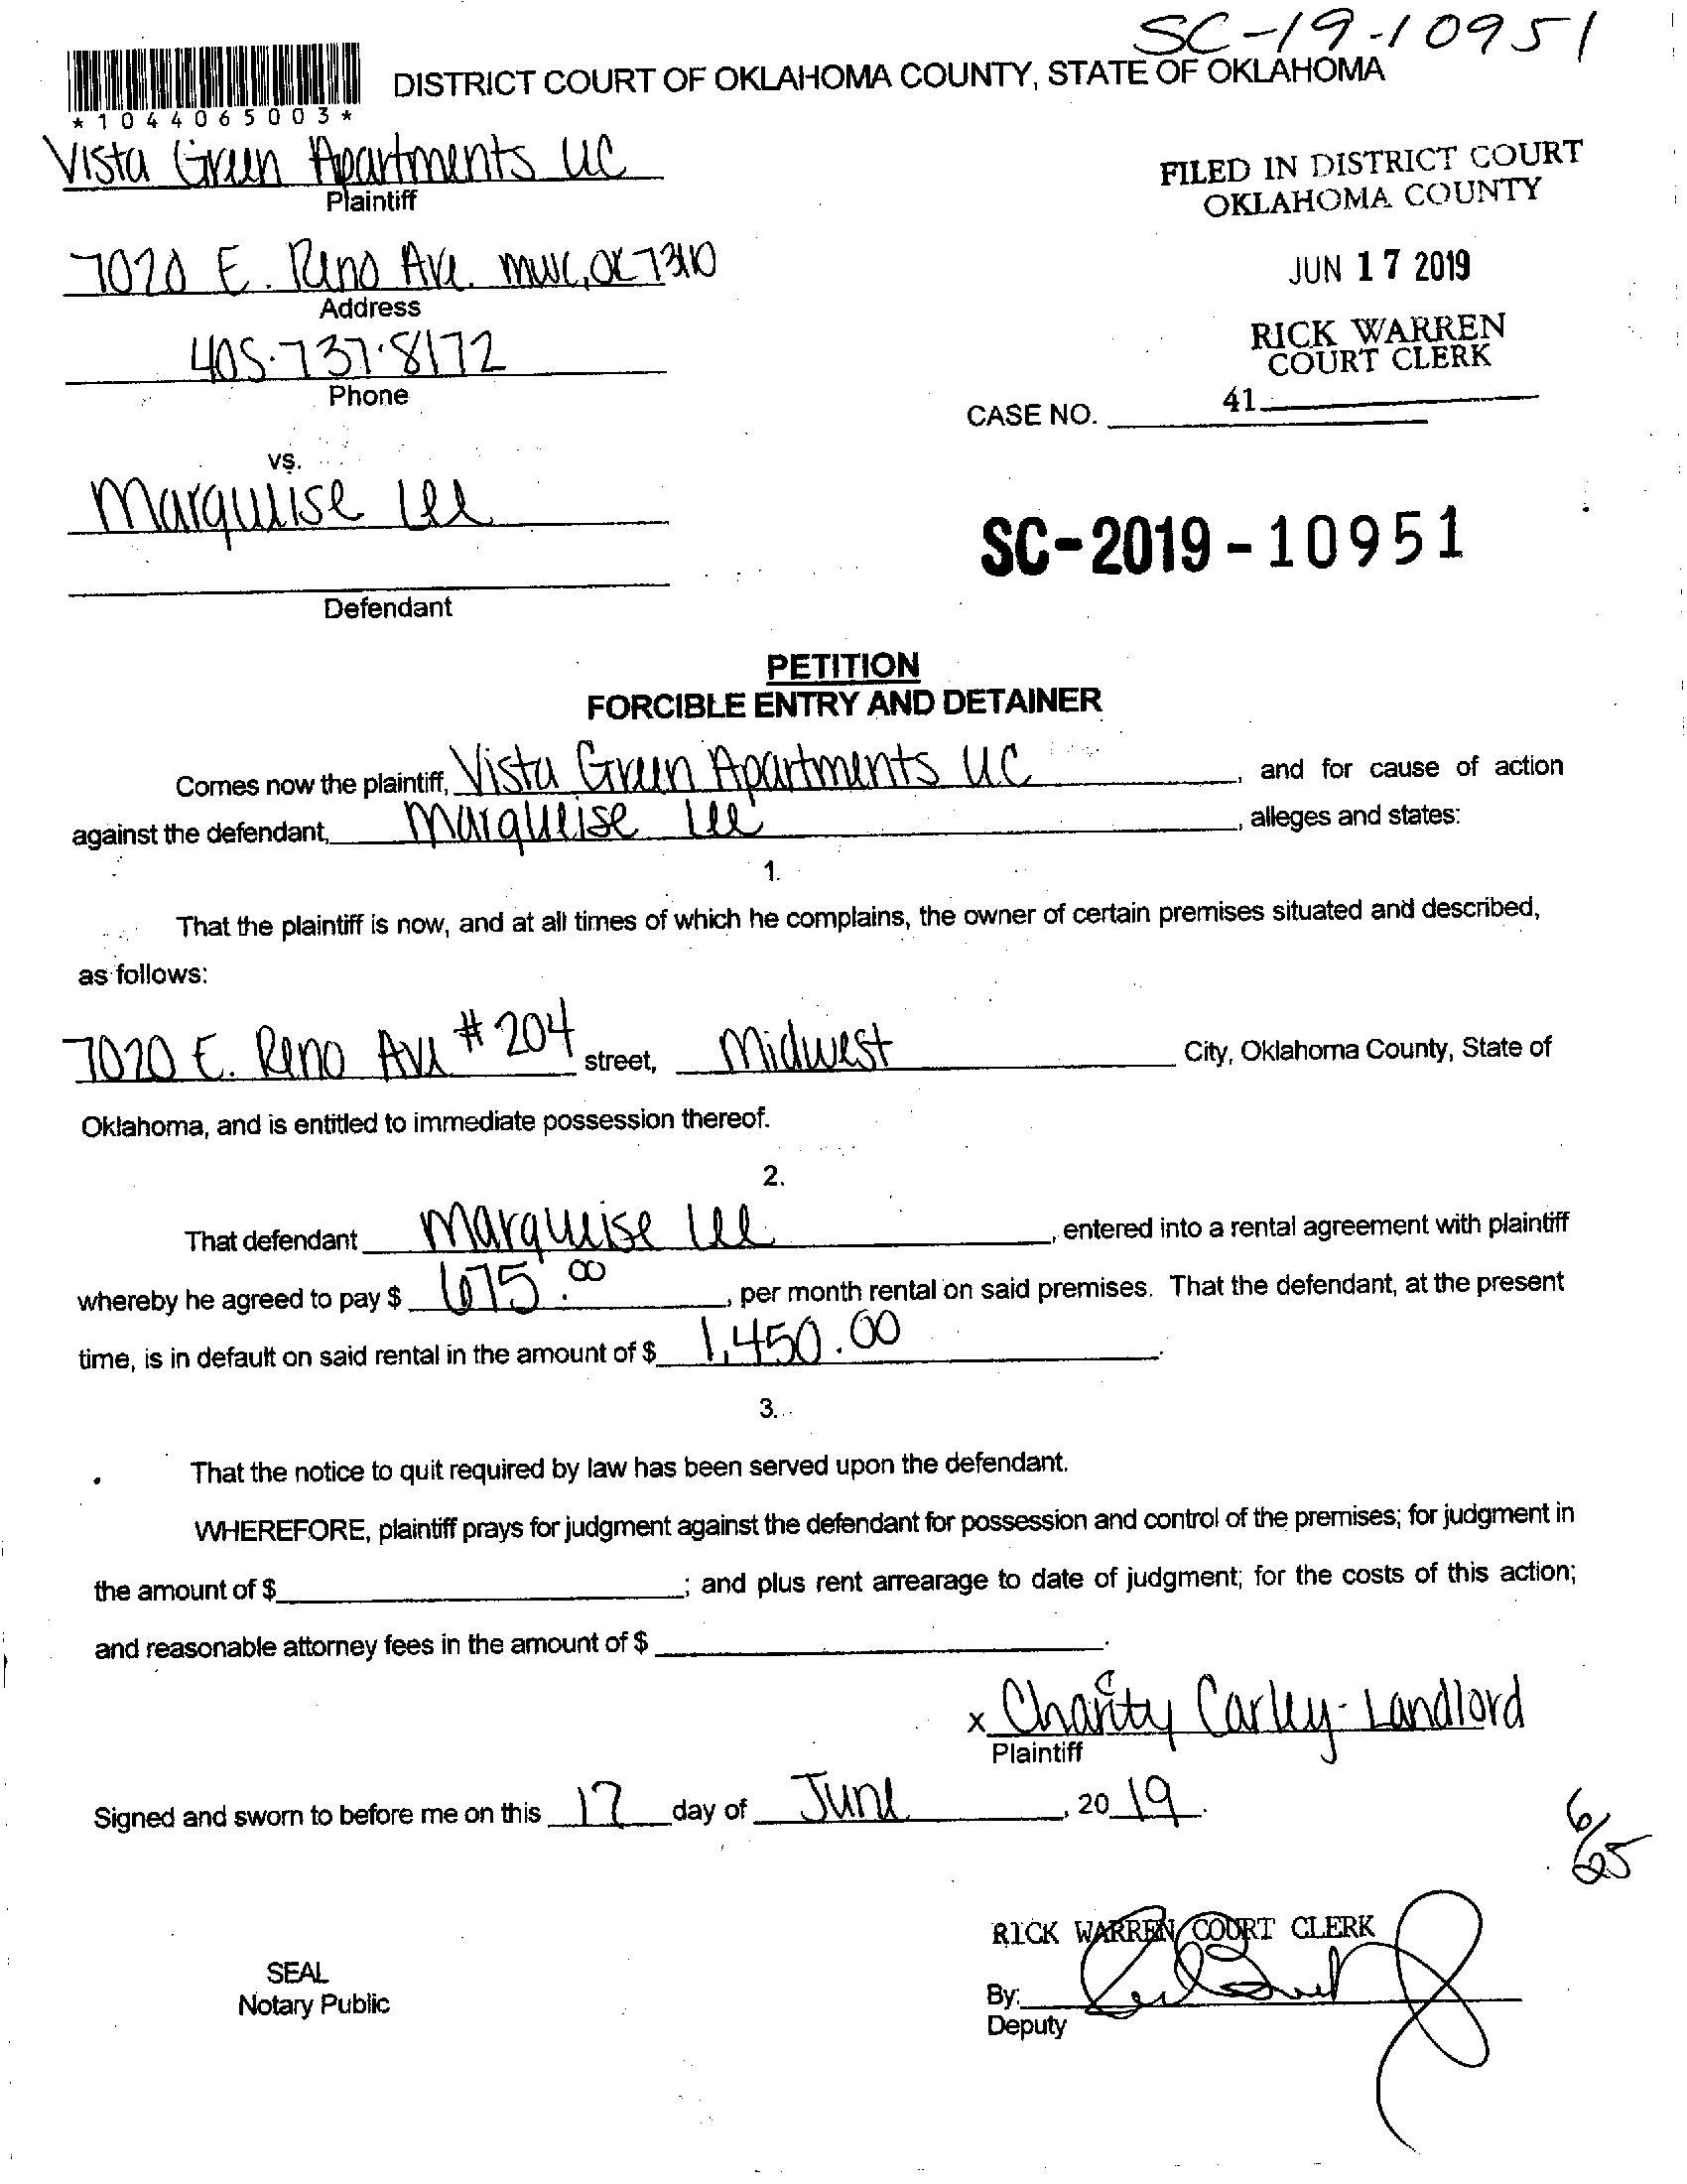 SC-19-10951
DISTRICT COURT OF OKLAHOMA COUNTY, STATE OF OKLAHOMA
*1044065003*
Vista Green Apartments LLC
Plaintiff
FILED IN DISTRICT COURT
OKLAHOMA COUNTY
7020 E. Reno Ave. MWC, OK 73110
Address
JUN 17 2019
405.737.8172
Phone
RICK WARREN
COURT CLERK
41
CASE NO.
vs.
Marqueise Lee
SC-2019-10951
Defendant
PETITION
FORCIBLE ENTRY AND DETAINER
Comes now the plaintiff, Vista Green Apartments LLC, and for cause of action
against the defendant, Marqueise Lee, alleges and states:
1.
That the plaintiff is now, and at all times of which he complains, the owner of certain premises situated and described,
as follows:
7020 E. Reno Ave #204 street, Midwest City, Oklahoma County, State of
Oklahoma, and is entitled to immediate possession thereof.
2.
That defendant Marqueise Lee, entered into a rental agreement with plaintiff
whereby he agreed to pay $ 675.00, per month rental on said premises. That the defendant, at the present
time, is in default on said rental in the amount of $ 1,450.00.
3.
That the notice to quit required by law has been served upon the defendant.
WHEREFORE, plaintiff prays for judgment against the defendant for possession and control of the premises; for judgment in
the amount of $; and plus rent arrearage to date of judgment; for the costs of this action;
and reasonable attorney fees in the amount of $.
x Charity Carley-Landlord
Plaintiff
Signed and sworn to before me on this 17 day of June, 2019.
6/25
RICK WARREN COURT CLERK
SEAL
Notary Public
By:
Deputy